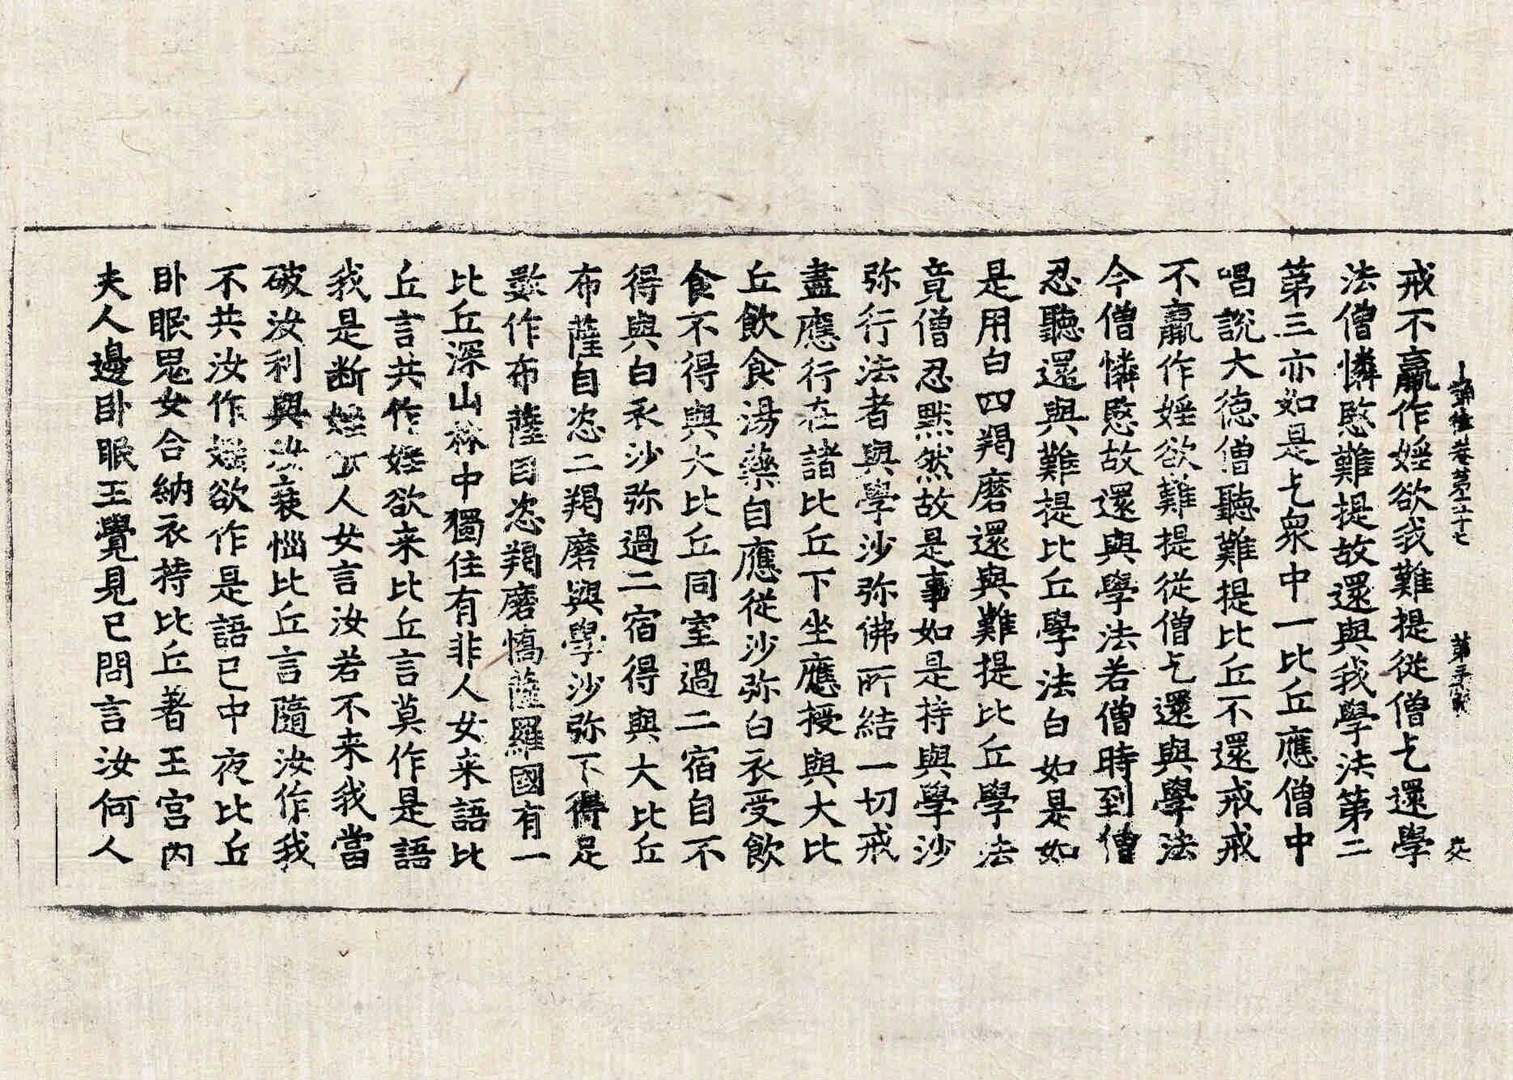 十誦律卷第五十七　第張　交
戒不羸作婬欲我難提從僧乞還學
法僧憐愍難提故還與我學法第二
第三亦如是乞衆中一比丘應僧中
唱說大德僧聽難提比丘不還戒戒
不羸作婬欲難提從僧乞還與學法
今僧憐愍故還與學法若僧時到僧
忍聽還與難提比丘學法白如是如
是用白四羯磨還與難提比丘學法
竟僧忍默然故是事如是持與學沙
弥行法者與學沙弥佛所結一切戒
盡應行在諸比丘下坐應授與大比
丘飲食湯藥自應從沙弥白衣受飲
食不得與大比丘同室過二宿自不
得與白衣沙弥過二宿得與大比丘
布薩自恣二羯磨與學沙弥不得足
數作布薩自恣羯磨憍薩羅國有一
比丘深山林中獨住有非人女来語比
丘言共作婬欲来比丘言莫作是語
我是断婬欲人女言汝若不来我當
破汝利與汝衰惱比丘言隨汝作我
不共汝作婬欲作是語已中夜比丘
卧眠鬼女合納衣持比丘著王宮内
夫人邊卧眠王覺見已問言汝何人